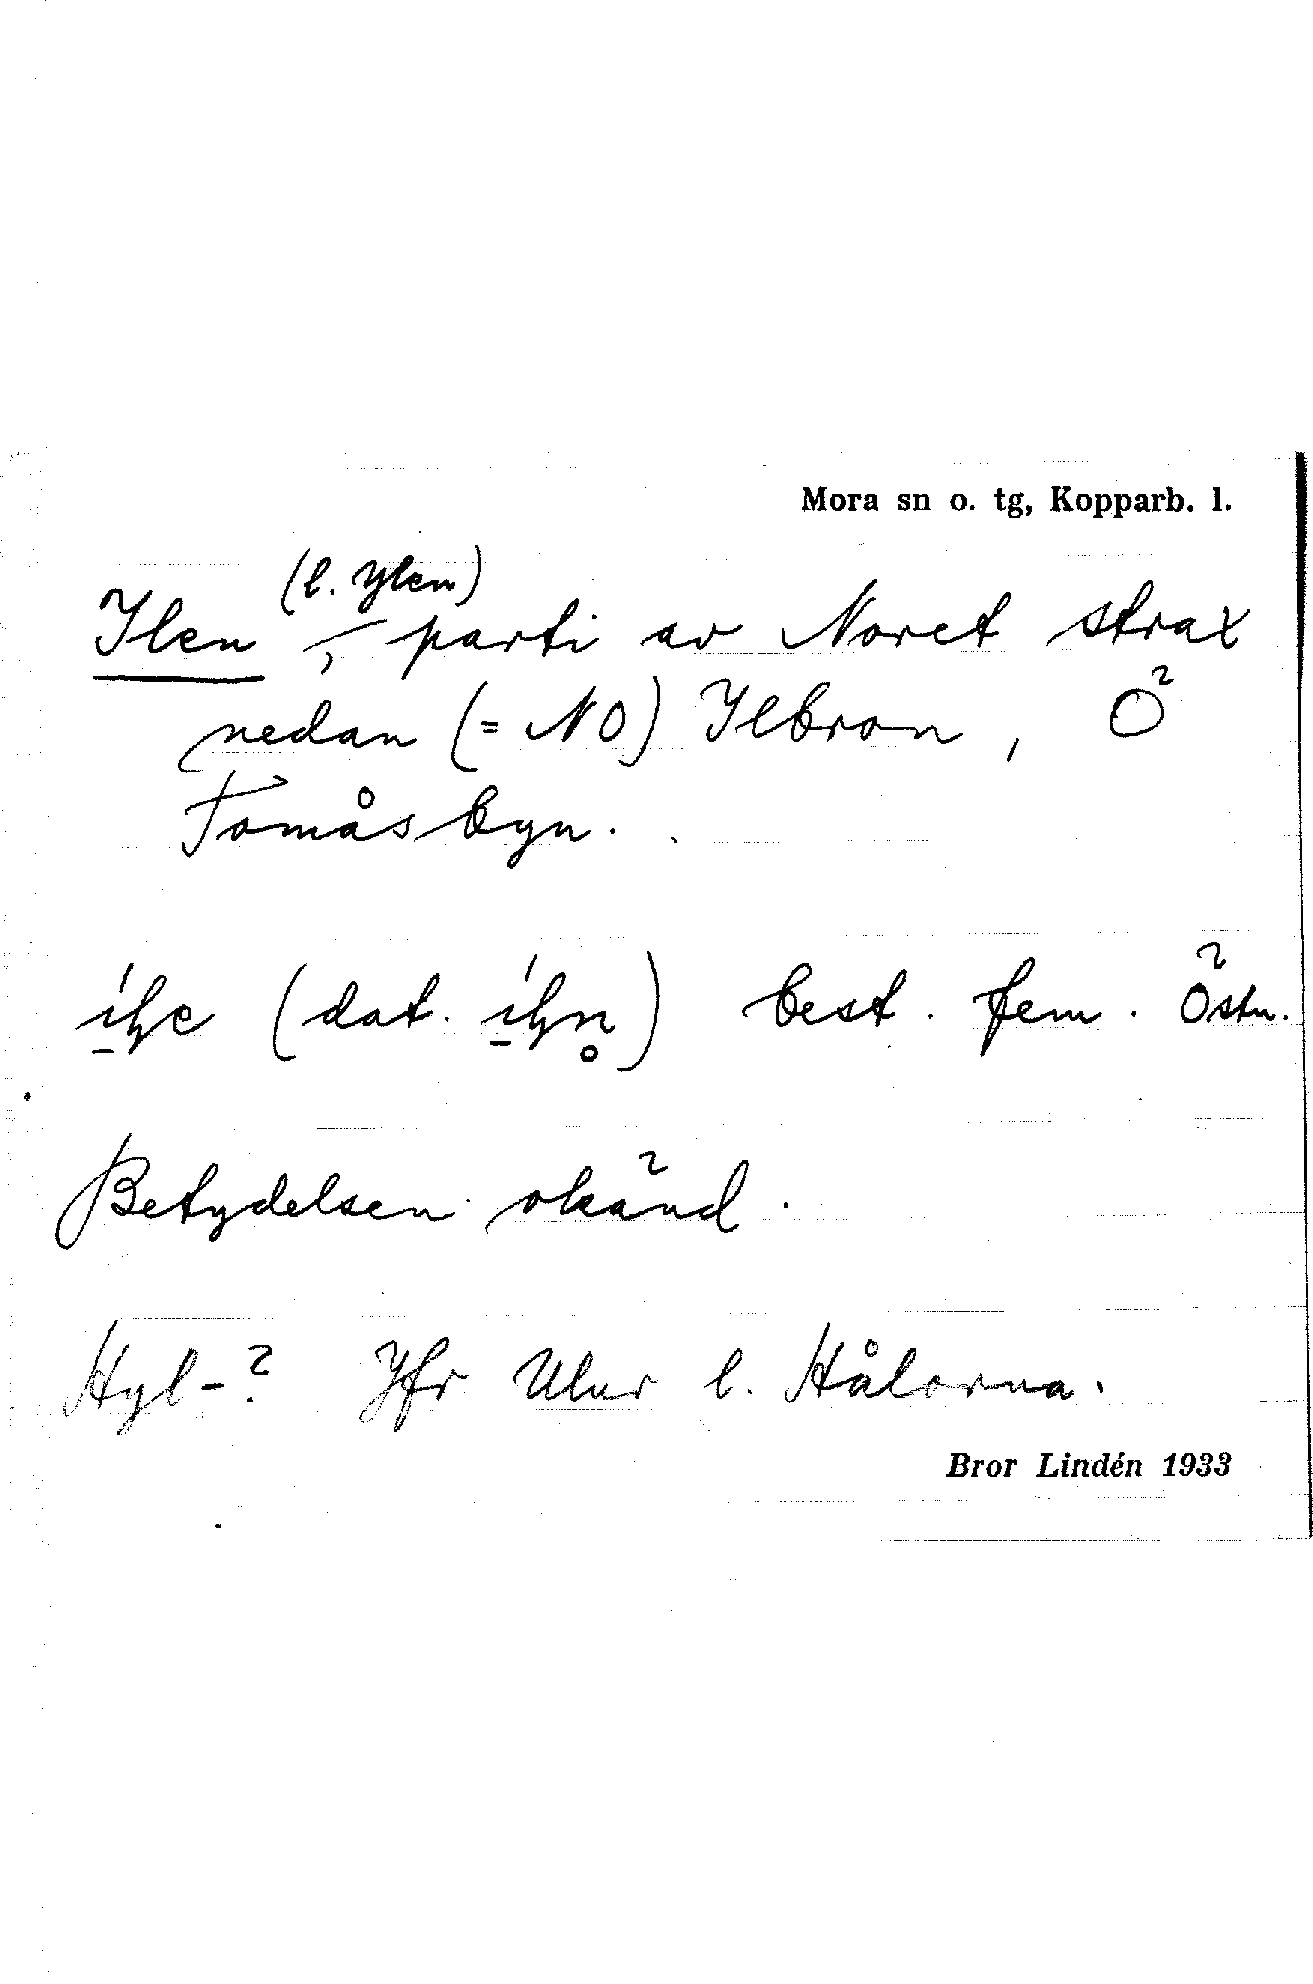 Mora sn o. tg, Kopparb. l.
(l. Ylen)
Ilen, parti av Noret strax
nedan (= NO) Ilbron, Ö
Tomåsbyn.
(dat. ) best. fem. Östn.
Betydelsen okänd.
Hyl-? Jfr Ulur l. Hålorna.
Bror Lindén 1933